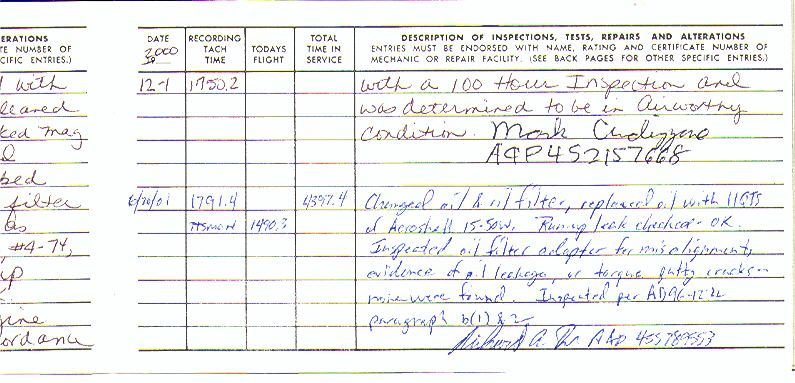 ERATIONS
TE NUMBER OF
CIFIC ENTRIES.)
with
leared
ked mag
bed
filter
as
#4-74,
up
gine
ordance
DATE
2000
RECORDING
TACH
TIME
TODAYS
FLIGHT
TOTAL
TIME IN
SERVICE
DESCRIPTION OF INSPECTIONS, TESTS, REPAIRS AND ALTERATIONS
ENTRIES MUST BE ENDORSED WITH NAME, RATING AND CERTIFICATE NUMBER OF
MECHANIC OR REPAIR FACILITY. (SEE BACK PAGES FOR OTHER SPECIFIC ENTRIES.)
12-1 1750.2 with a 100 Hour Inspection and
was determined to be in Airworthy
condition. Mark
A&P 452157668
6/30/01 1791.4 4397.4 Changed oil & oil filter, replaced oil with 11QTS
TSMOH 1490.3 of Aeroshell 15-50W. Runup leak check - OK.
Inspected oil filter adapter for misalignment,
evidence of oil leakage, or torque putty cracks -
none were found. Inspected per AD 96-12-22
paragraph b(1) & 2
Richard A. A&P